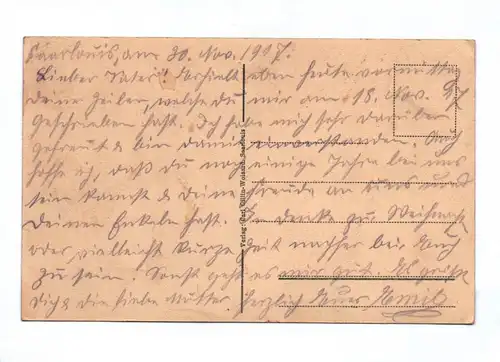 Saarlouis, am 20. Nov. 1917.
Lieber Vater! Erhielt eben heute vormittag
deine Zeilen, welche du mir am 18. Nov. 17
geschrieben hast. Ich habe mich sehr darüber
gefreut & bin damit einverstanden. Auch
hoffe ich, daß du noch einige Jahre bei uns
sein kannst & deine Freude an uns und
deinen Enkeln hast. Ich denke zu Weihnacht
oder vielleicht kurze Zeit nachher bei Euch
zu sein. Sonst geht es mir gut. Es grüßt
Dich & die liebe Mutter herzlich Euer Emil
Verlag Saarlouis